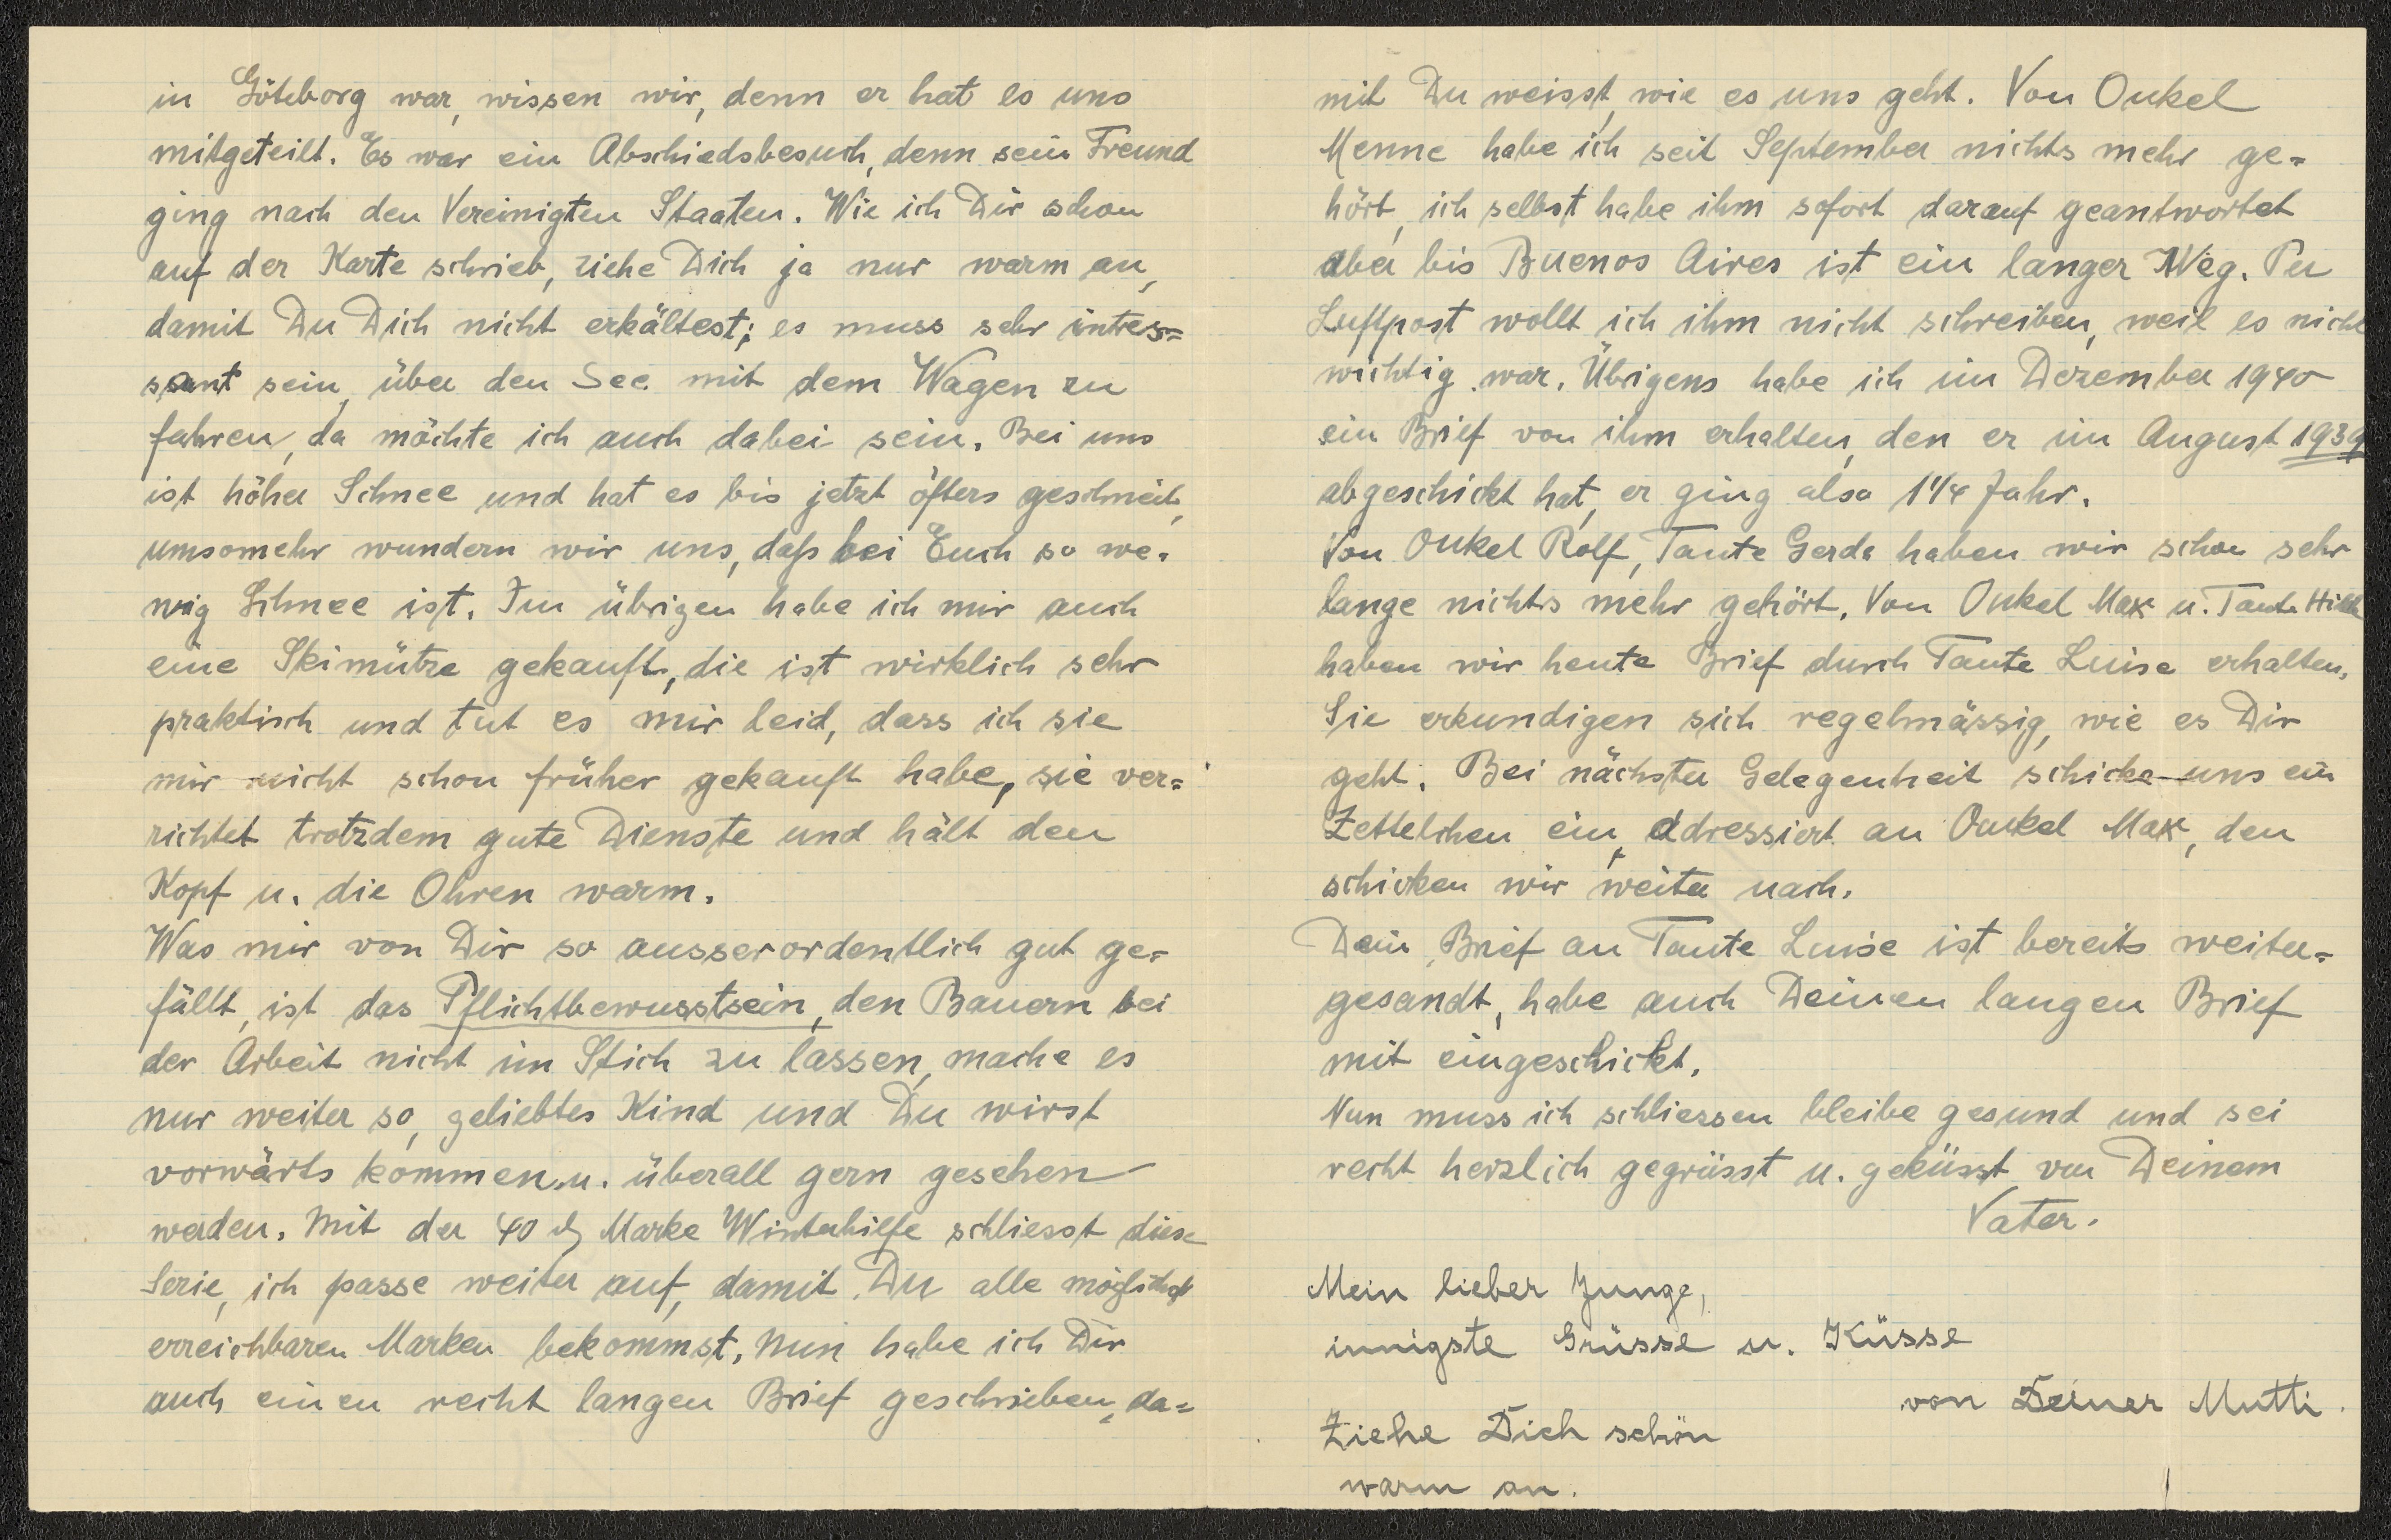 in Göteborg war, wissen wir, denn er hat es uns
mitgeteilt. Es war ein Abschiedsbesuch, denn sein Freund
ging nach den Vereinigten Staaten. Wie ich Dir schon
auf der Karte schrieb, ziehe Dich ja nur warm an,
damit Du Dich nicht erkältest; es muss sehr intres=
sant sein, über den See mit dem Wagen zu
fahren, da möchte ich auch dabei sein. Bei uns
ist hoher Schnee und hat es bis jetzt öfters geschneit,
umsomehr wundern wir uns, daß bei Euch so we-
nig Schnee ist. Im übrigen habe ich mir auch
eine Skimütze gekauft, die ist wirklich sehr
praktisch und tut es mir leid, dass ich sie
mir nicht schon früher gekauft habe, sie ver=
richtet trotzdem gute Dienste und hält den
Kopf u. die Ohren warm.
Was mir von Dir so ausserordentlich gut ge-
fällt, ist das Pflichtbewusstsein, den Bauern bei
der Arbeit nicht im Stich zu lassen, mache es
nur weiter so, geliebtes Kind und Du wirst
vorwärts kommen u. überall gern gesehen
werden. Mit der 40 ₰ Marke Winterhilfe schliesst diese
Serie, ich passe weiter auf, damit Du alle möglichst
erreichbaren Marken bekommst. Nun habe ich Dir
auch einen recht langen Brief geschrieben, da=
mit Du weisst, wie es uns geht. Von Onkel
Menne habe ich seit September nichts mehr ge=
hört, ich selbst habe ihm sofort darauf geantwortet
aber bis Buenos Aires ist ein langer Weg. Per
Luftpost wollt ich ihm nicht schreiben, weil es nicht
wichtig war. Übrigens habe ich im Dezember 1940
ein Brief von ihm erhalten, den er im August 1939
abgeschickt hat, er ging also 1 1/4 Jahr.
Von Onkel Rolf, Tante Gerda haben wir schon sehr
lange nichts mehr gehört. Von Onkel Max u. Tante Hilde
haben wir heute Brief durch Tante Luise erhalten.
Sie erkundigen sich regelmässig, wie es Dir
geht. Bei nächster Gelegenheit schicke uns ein
Zettelchen ein, adressiert an Onkel Max, den
schicken wir weiter nach.
Dein Brief an Tante Luise ist bereits weiter=
gesandt, habe auch Deinen langen Brief
mit eingeschickt.
Nun muss ich schliessen bleibe gesund und sei
recht herzlich gegrüsst u. geküsst von Deinem
Vater.
Mein lieber Junge,
innigste Grüsse u. Küsse
von Deiner Mutti.
Ziehe Dich schön
warm an.